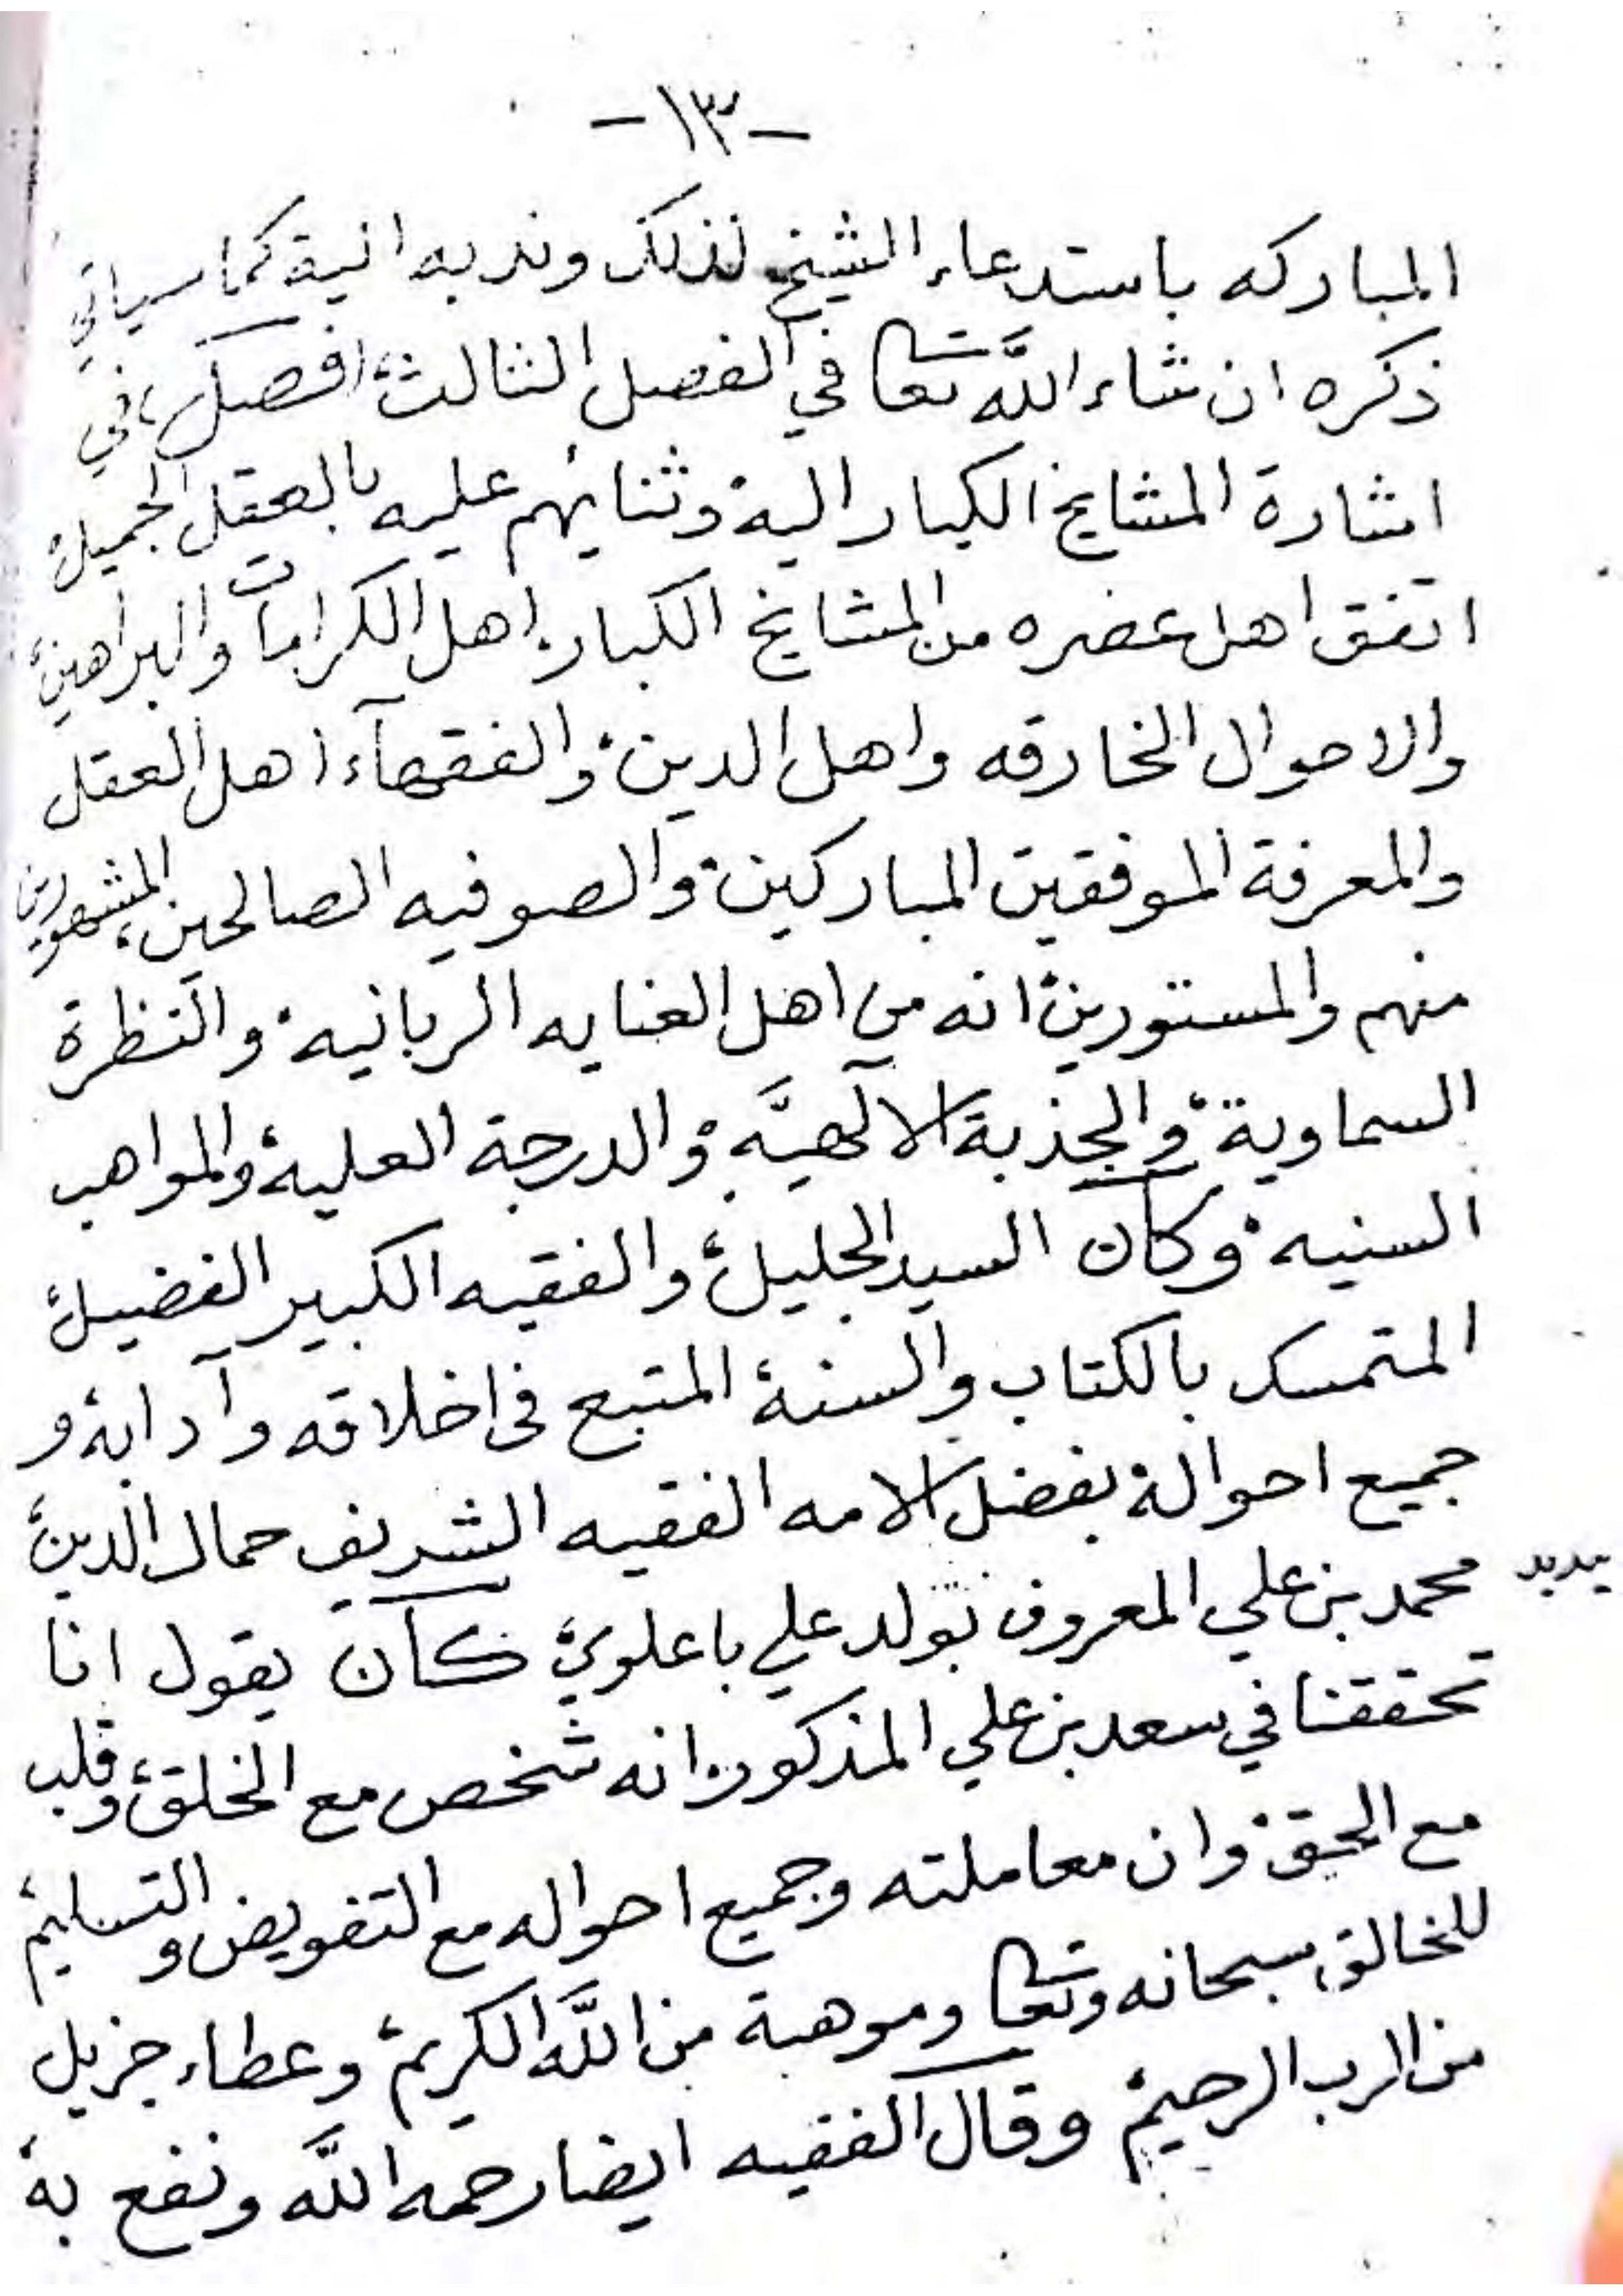 -١٣-
المباركه باستدعاء الشيخ لذلك وندبه اليه كما سياتي
ذكره ان شاء اللَّه تعا في الفصل الثالث، فصل، في
اشارة المشايخ الكبار اليه وثنايُهم عليه بالعقل الجميل
اتفق اهل عصره من المشايخ الكبار، اهل الكرامات والبراهين،
والاحوال الخارقه واهل الدين، والفقهآء اهل العقل
والمعرفة الموفقين المباركين، والصوفيه الصالحين، المشهورين
منهم والمستورين، انه من اهل العنايه الربانيه، والنظرة
السماوية، والجذبة الالهيَّه، والدرجة العلية، والمواهب
السنيه، وكان السيد الجليل، والفقيه الكبير الفضيل،
المتمسك بالكتاب والسنة، المتبع فى اخلاقه وآدابه، و
جميع احواله بفضل الامه الفقيه الشريف جمال الدين،
محمد بن علي المعروف بمولد علي باعلوي، كان يقول انا
تحققنا في سعد بن علي المذكور، انه شخص مع الخلق، وقلب
مع الحق، وان معاملته وجميع احواله مع التفويض والتسليم
للخالق، سبحانه وتعا وموهبة من اللَّه الكريم، وعطاء جزيل
من الرب الرحيم، وقال الفقيه ايضا رحمه اللَّه ونفع به،